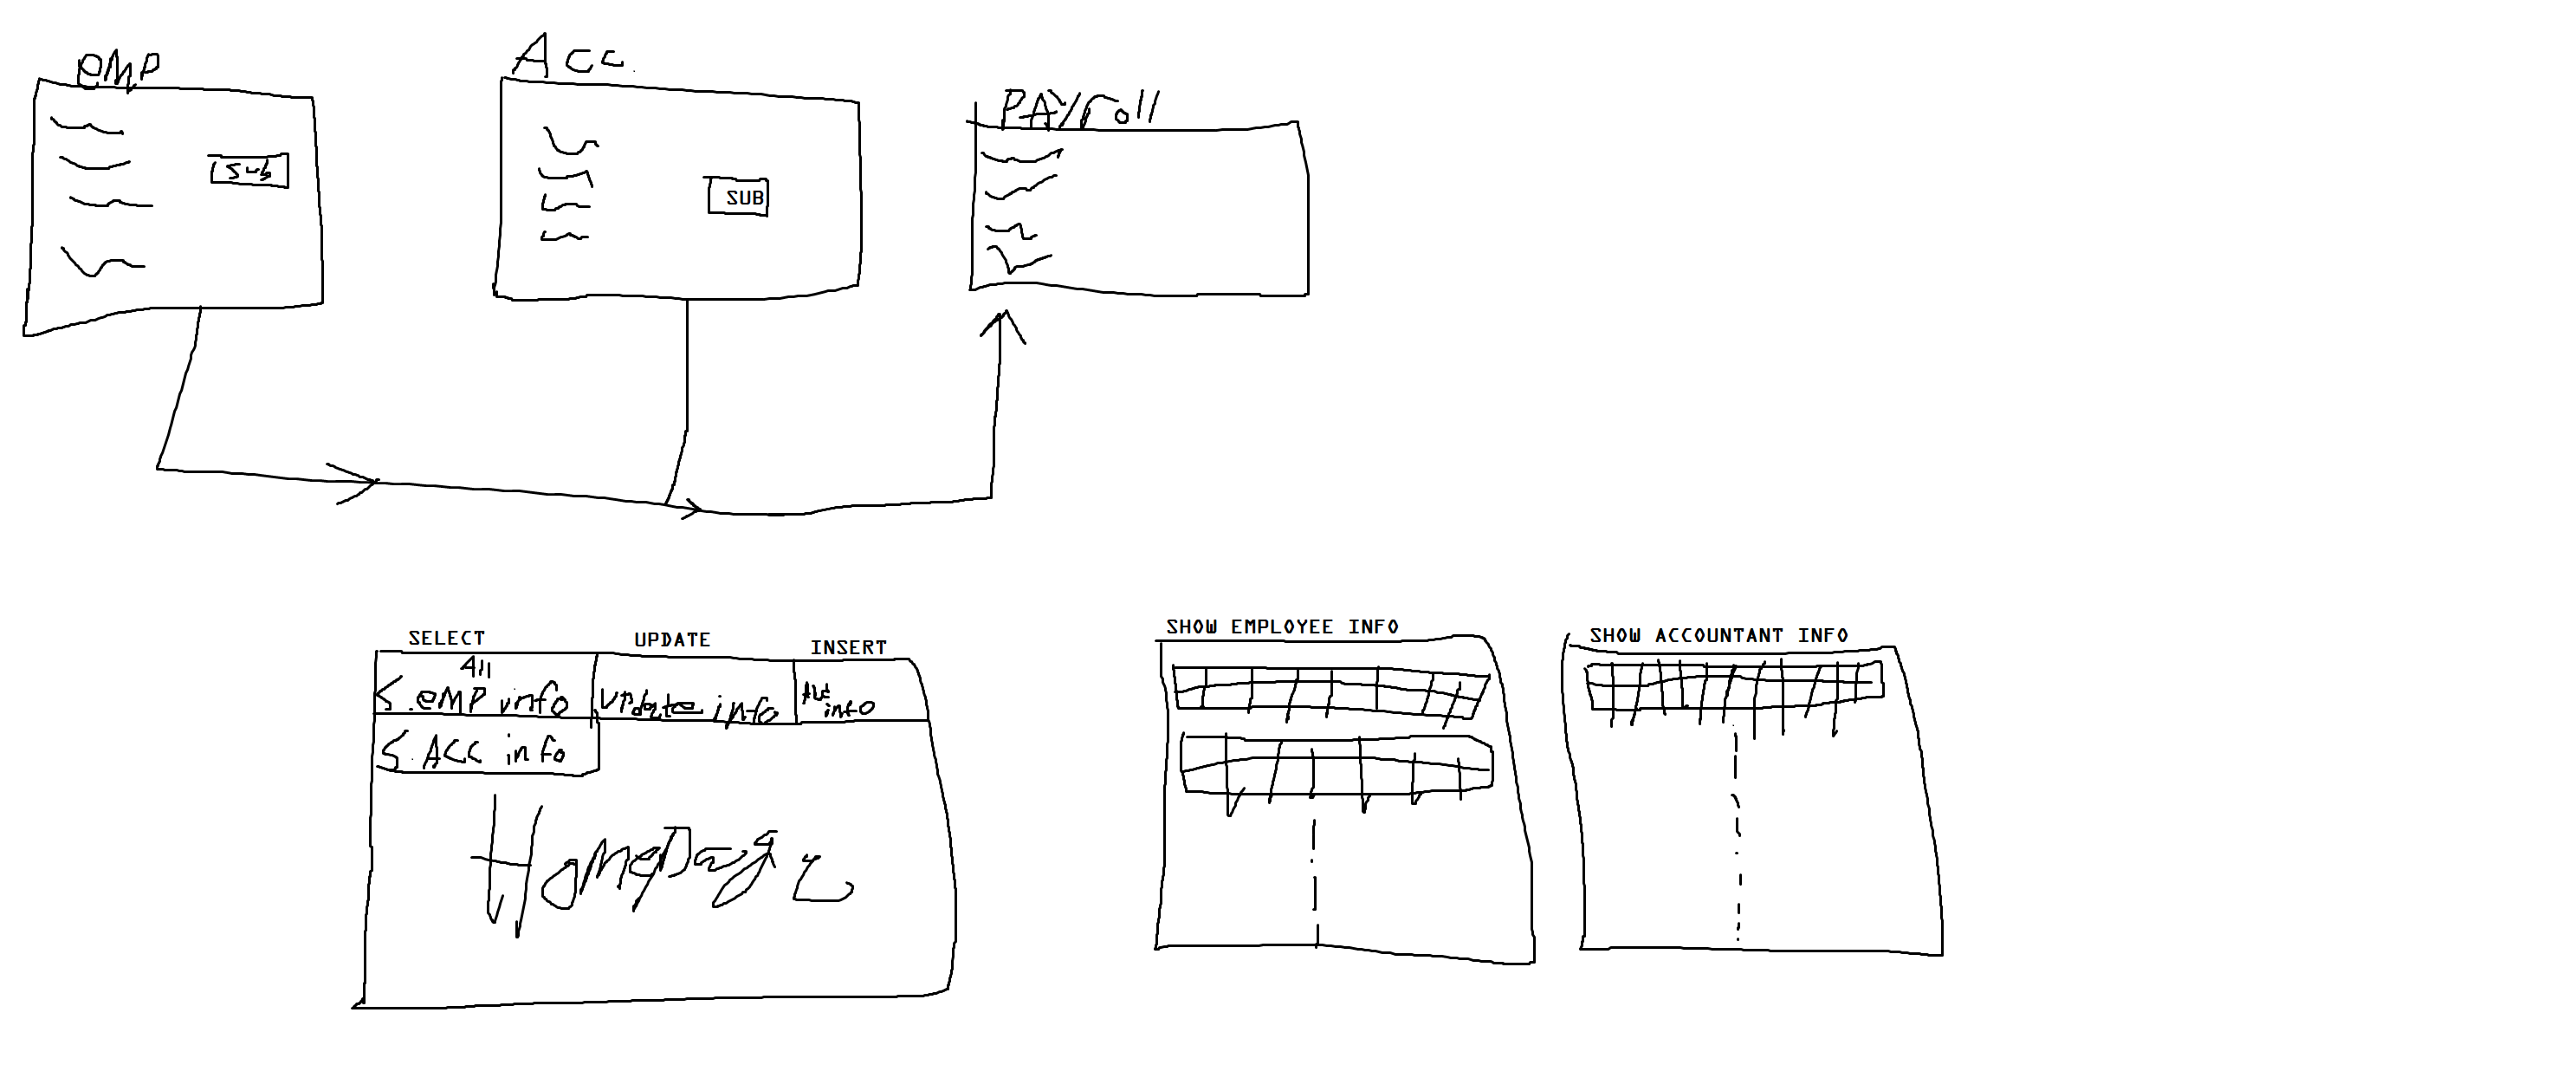 emp
Acc.
PAYroll
Sub
SUB
SELECT
UPDATE
INSERT
All
S.emp info
Update info
info
S.ACC info
Homepage
SHOW EMPLOYEE INFO
SHOW ACCOUNTANT INFO